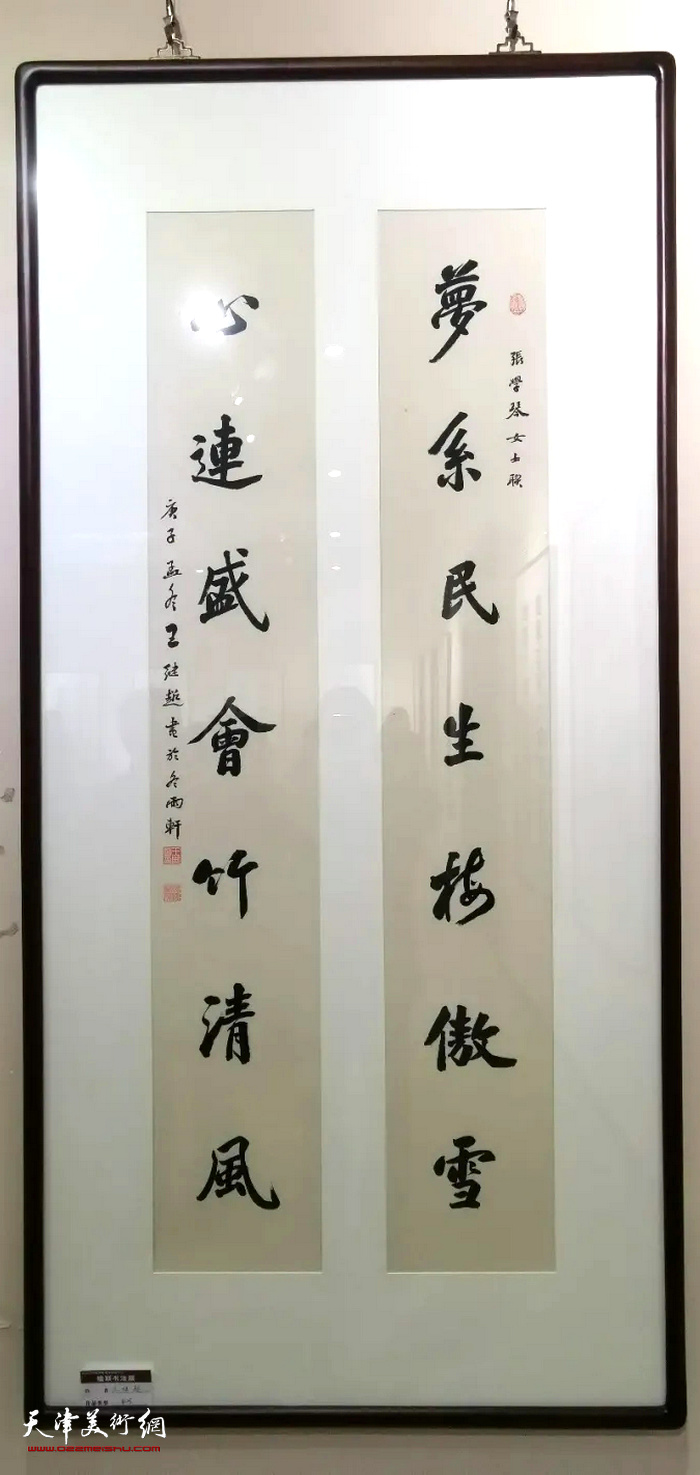 張學琴女士联
夢系民生梅傲雪
心連盛會竹清風
庚子孟冬王继超书於冬雨軒
楹联书法展
天津美術網
www.022meishu.com